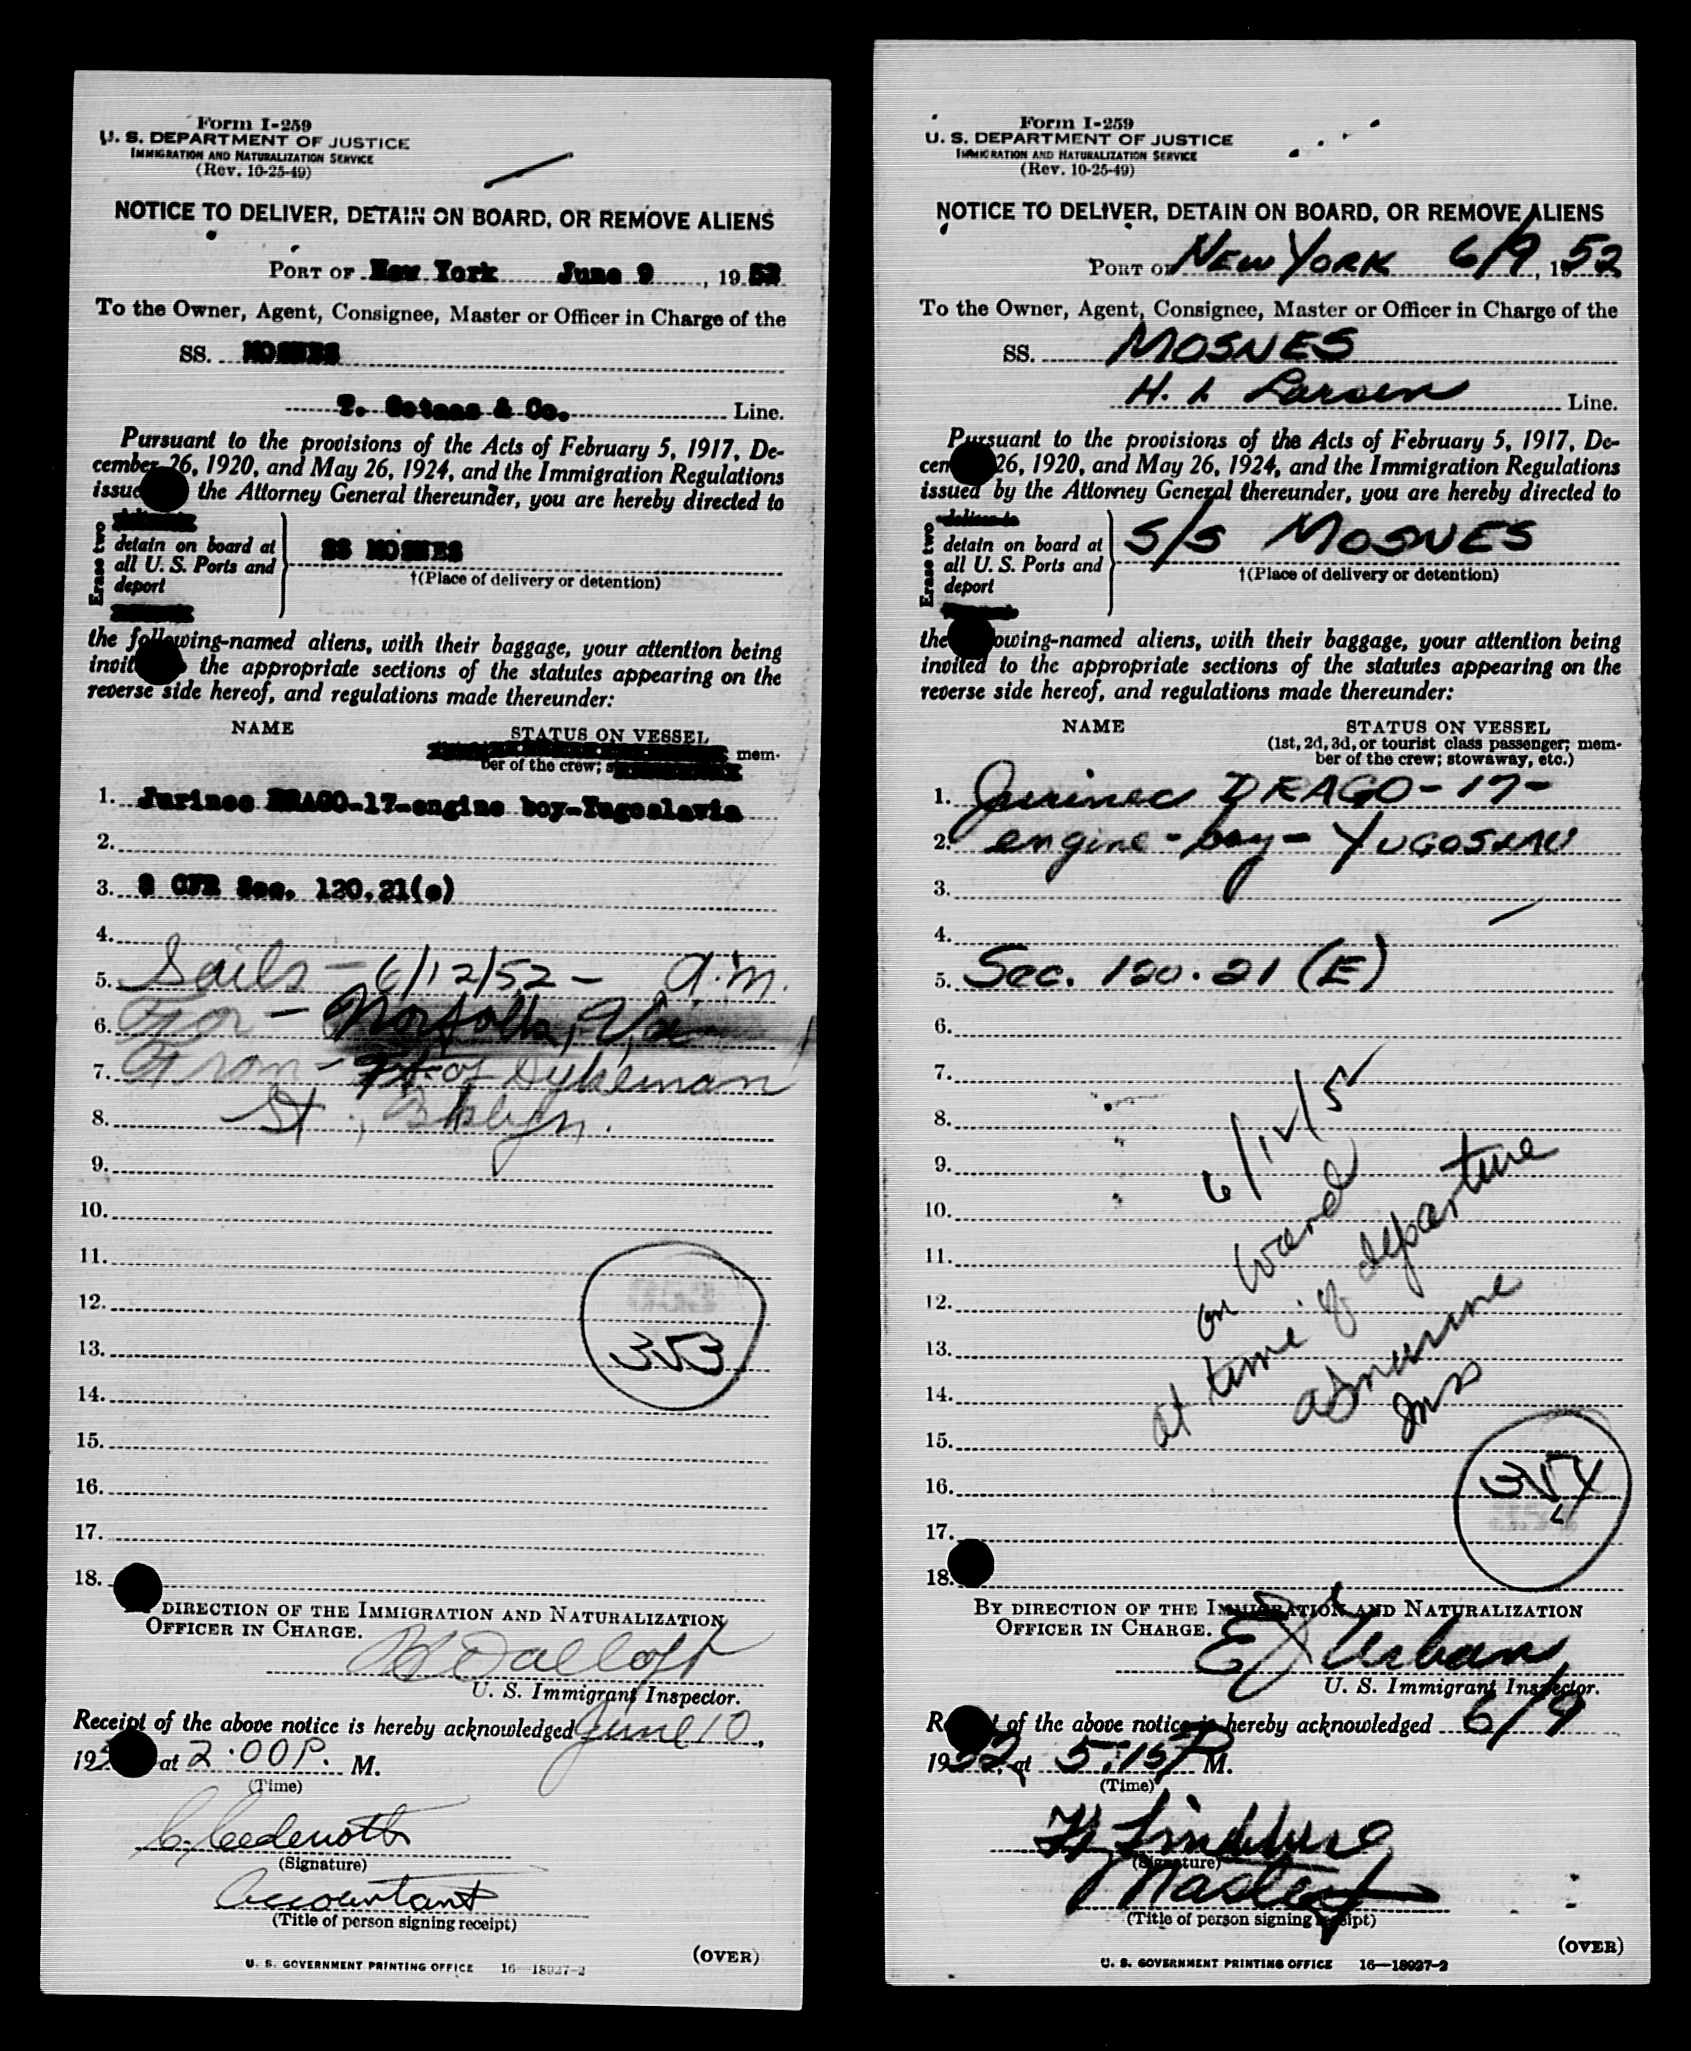 Form I-259
U. S. DEPARTMENT OF JUSTICE
IMMIGRATION AND NATURALIZATION SERVICE
(Rev. 10-25-49)
NOTICE TO DELIVER, DETAIN ON BOARD, OR REMOVE ALIENS
PORT OF New York June 9, 1952
To the Owner, Agent, Consignee, Master or Officer in Charge of the
SS. MOSNES
& Co. Line.
Pursuant to the provisions of the Acts of February 5, 1917, De-
cember 26, 1920, and May 26, 1924, and the Immigration Regulations
issued the Attorney General thereunder, you are hereby directed to
Erase two
detain on board at
all U. S. Ports and
deport
SS MOSNES
†(Place of delivery or detention)
the following-named aliens, with their baggage, your attention being
invit the appropriate sections of the statutes appearing on the
reverse side hereof, and regulations made thereunder:
NAME STATUS ON VESSEL
mem-
ber of the crew;
1. Jurinec DRAGO-17-engine boy-Yugoslavia
2.
3. 8 CFR Sec. 120.21(e)
4.
5. Sails - 6/12/52 - A.M.
6. For - Norfolk, Va
7. From - Ft. of Dykeman
8. St., Bklyn.
9.
10.
11.
12.
13. 353
14.
15.
16.
17.
18.
DIRECTION OF THE IMMIGRATION AND NATURALIZATION
OFFICER IN CHARGE.
U. S. Immigrant Inspector.
Receipt of the above notice is hereby acknowledged June 10,
195 at 2:00 P. M.
(Time)
(Signature)
Accountant
(Title of person signing receipt)
(OVER)
U. S. GOVERNMENT PRINTING OFFICE 16—18927-2
Form I-259
U. S. DEPARTMENT OF JUSTICE
IMMIGRATION AND NATURALIZATION SERVICE
(Rev. 10-25-49)
NOTICE TO DELIVER, DETAIN ON BOARD, OR REMOVE ALIENS
PORT OF NEW YORK 6/9, 1952
To the Owner, Agent, Consignee, Master or Officer in Charge of the
SS. MOSNES
H. L. Larsen Line.
Pursuant to the provisions of the Acts of February 5, 1917, De-
cem 26, 1920, and May 26, 1924, and the Immigration Regulations
issued by the Attorney General thereunder, you are hereby directed to
Erase two
deliver to
detain on board at
all U. S. Ports and
deport
S/S MOSNES
†(Place of delivery or detention)
the owing-named aliens, with their baggage, your attention being
invited to the appropriate sections of the statutes appearing on the
reverse side hereof, and regulations made thereunder:
NAME STATUS ON VESSEL
(1st, 2d, 3d, or tourist class passenger; mem-
ber of the crew; stowaway, etc.)
1. Jurinec DRAGO-17-
2. engine-boy-YUGOSLAV
3.
4.
5. Sec. 120.21 (E)
6.
7.
8.
9.
10.
11.
12.
13.
14.
15.
16.
17.
18.
6/12/52
on board
at time of departure
Ins
354
BY DIRECTION OF THE IMMIGRATION AND NATURALIZATION
OFFICER IN CHARGE.
E J Urban
U. S. Immigrant Inspector.
R t of the above notice is hereby acknowledged 6/9
1952, at 5:15 P M.
(Time)
(Signature)
Master
(Title of person signing receipt)
(OVER)
U. S. GOVERNMENT PRINTING OFFICE 16—18927-2